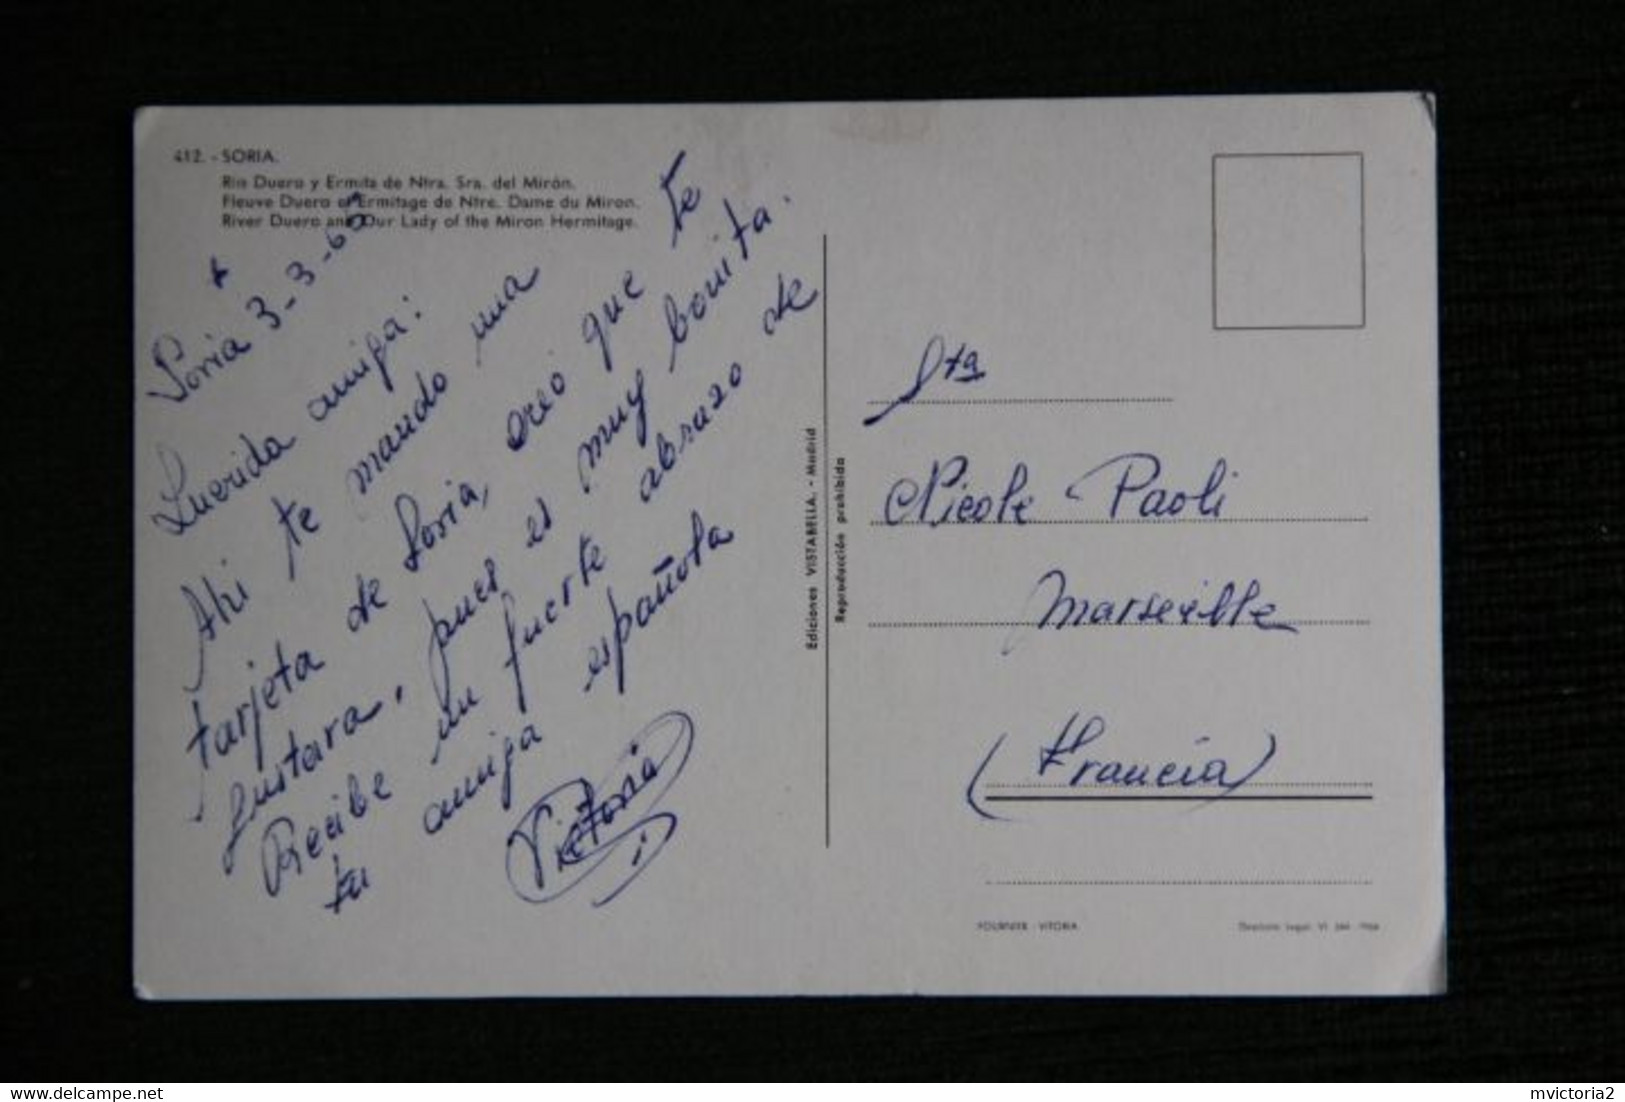 412. - SORIA.
Rio Duero y Ermita de Ntra. Sra. del Mirón.
Fleuve Duero et Ermitage de Ntre. Dame du Miron.
River Duero and Our Lady of the Miron Hermitage.
Soria 3-3-65
Querida amiga:
Ahi te mando una
tarjeta de Soria, creó que te
gustara, pues es muy bonita.
Recibe un fuerte abrazo de
tu amiga española
Victoria
Ediciones VISTABELLA. - Madrid
Reproducción prohibida
Sta
Nicole Paoli
Marseille
(Francia)
FOURNIER - VITORIA
Depósito Legal: VI
mvictoria2